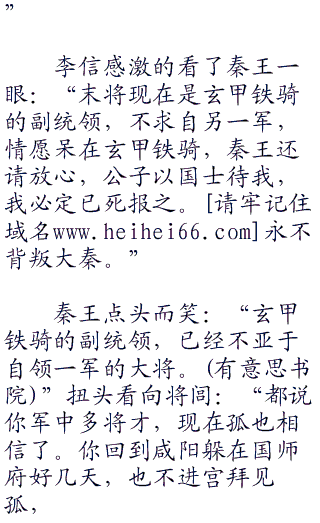 ”
李信感激的看了秦王一
眼：“末将现在是玄甲铁骑
的副统领，不求自另一军，
情愿呆在玄甲铁骑，秦王还
请放心，公子以国士待我，
我必定已死报之。[请牢记住
域名www.heihei66.com]永不
背叛大秦。”
秦王点头而笑：“玄甲
铁骑的副统领，已经不亚于
自领一军的大将。(有意思书
院)”扭头看向将闾：“都说
你军中多将才，现在孤也相
信了。你回到咸阳躲在国师
府好几天，也不进宫拜见
孤，